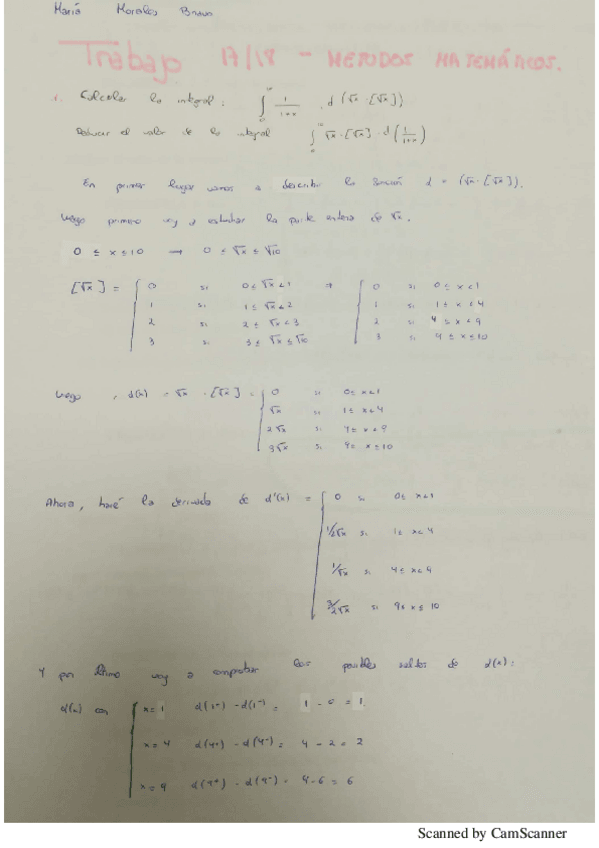 María Morales Bravo
Trabajo 17/18 - METODOS MATEMÁTICOS.
1. Calcular la integral: ∫₀¹⁰ 1/(1+x) · d(√x·[√x])
Deducir el valor de la integral ∫₀¹⁰ √x·[√x]·d(1/(1+x))
En primer lugar vamos a describir la función d = (√x·[√x]).
Luego primero voy a estudiar la parte entera de √x.
0 ≤ x ≤ 10 → 0 ≤ √x ≤ √10
[√x] = { 0 si 0 ≤ √x < 1 ⇒ { 0 si 0 ≤ x < 1
1 si 1 ≤ √x < 2 1 si 1 ≤ x < 4
2 si 2 ≤ √x < 3 2 si 4 ≤ x < 9
3 si 3 ≤ √x ≤ √10 3 si 9 ≤ x ≤ 10
Luego, d(x) = √x · [√x] = { 0 si 0 ≤ x < 1
√x si 1 ≤ x < 4
2√x si 4 ≤ x < 9
3√x si 9 ≤ x ≤ 10
Ahora, haré la derivada de d'(x) = { 0 si 0 ≤ x < 1
1/2√x si 1 ≤ x < 4
1/√x si 4 ≤ x < 4
3/2√x si 9 ≤ x ≤ 10
Y por último voy a comprobar los posibles saltos de d(x):
d(x) en { x = 1 d(1⁺) - d(1⁻) = 1 - 0 = 1.
x = 4 d(4⁺) - d(4⁻) = 4 - 2 = 2
x = 9 d(9⁺) - d(9⁻) = 9 - 6 = 6
Scanned by CamScanner